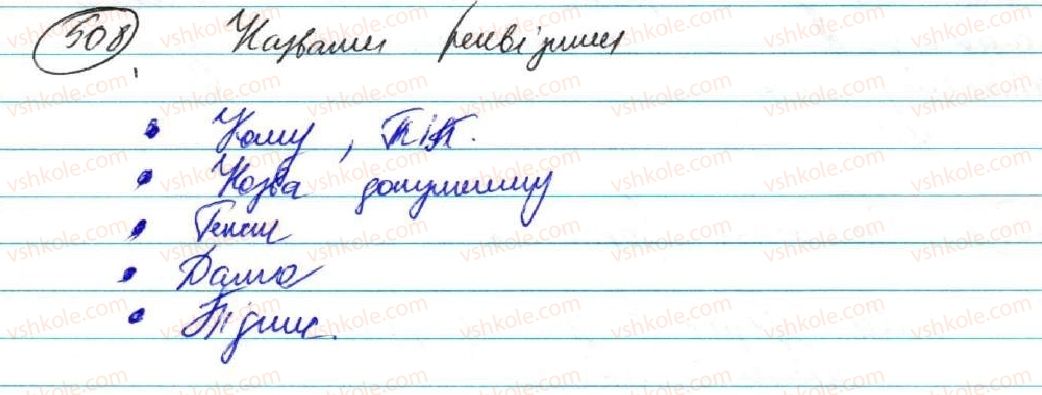 508 Назвати реквізити
• Кому, ПіП.
• Назва документу
• Текст
• Дата
• Підпис.
vshkole.com